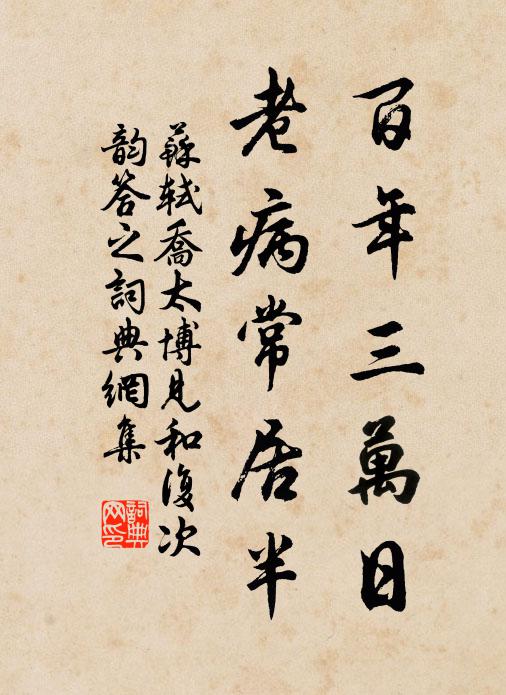 百年三萬日
老病常居半
蘇軾喬太博見和復次
韵答之詞典網集
詞典网印